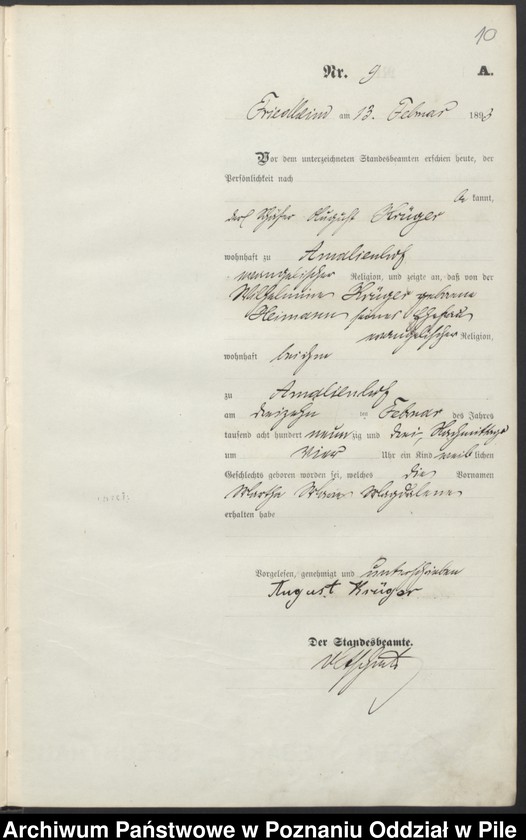 10
Nr. 9 A.
Friedheim am 13. Februar 1893
Vor dem unterzeichneten Standesbeamten erschien heute, der
Persönlichkeit nach
be kannt,
der Schäfer August Krüger
wohnhaft zu Amalienhof
evangelischer Religion, und zeigte an, daß von der
Wilhelmine Krüger geborene
Heimann seiner Ehefrau
evangelischer Religion,
wohnhaft bei ihm
zu Amalienhof
am dreizehn ten Februar des Jahres
tausend acht hundert neun zig und drei, Nachmittags
um vier Uhr ein Kind weib lichen
Geschlechts geboren worden sei, welches die Vornamen
Martha Marie Magdalene
erhalten habe
Vorgelesen, genehmigt und unterschrieben
August Krüger
Der Standesbeamte.
Archiwum Państwowe w Poznaniu Oddział w Pile